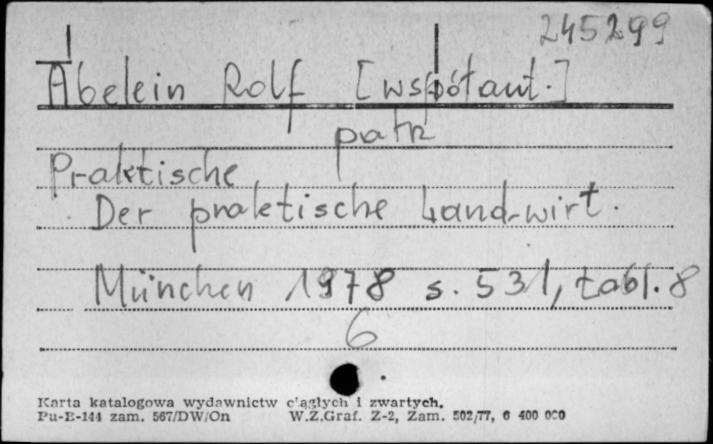 245299
Abelein Rolf [współaut.]
patrz
Praktische
Der praktische Landwirt.
München 1978 s. 531, tabl. 8
6
Karta katalogowa wydawnictw ciągłych i zwartych.
Pu-E-144 zam. 567/DW/On W.Z.Graf. Z-2, Zam. 502/77, 6 400 000